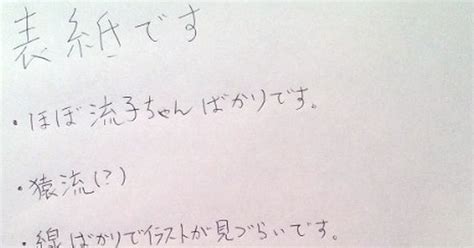 表紙です
・ほぼ流子ちゃんばかりです。
・猿流(?)
・線ばかりでイラストが見づらいです。